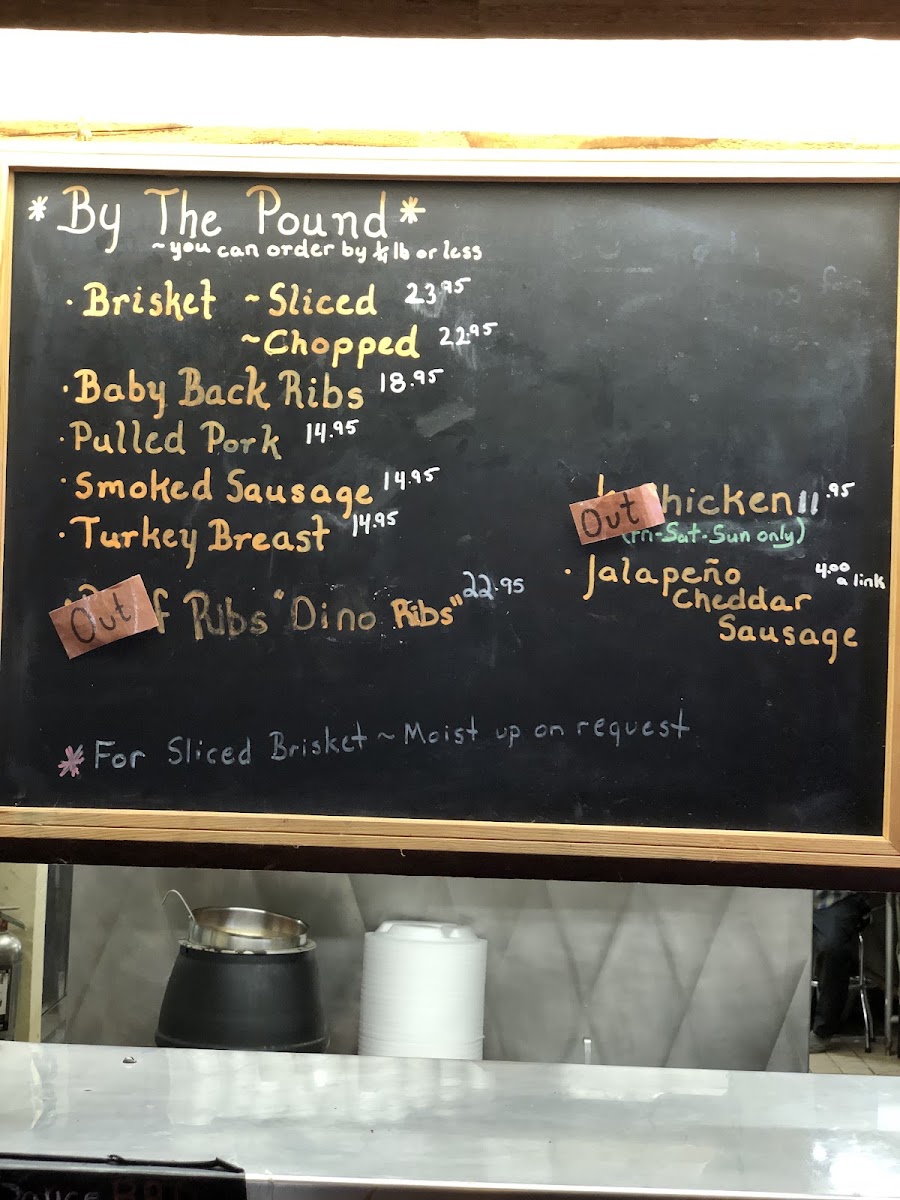 * By The Pound *
~you can order by ¼ lb or less
· Brisket ~ Sliced 23.95
~Chopped 22.95
· Baby Back Ribs 18.95
· Pulled Pork 14.95
· Smoked Sausage 14.95
· Turkey Breast 14.95
Out Ribs "Dino Ribs" 22.95
* For Sliced Brisket ~ Moist up on request
Out hicken 11.95
(Fri-Sat-Sun only)
· Jalapeño 4.00 a link
Cheddar
Sausage